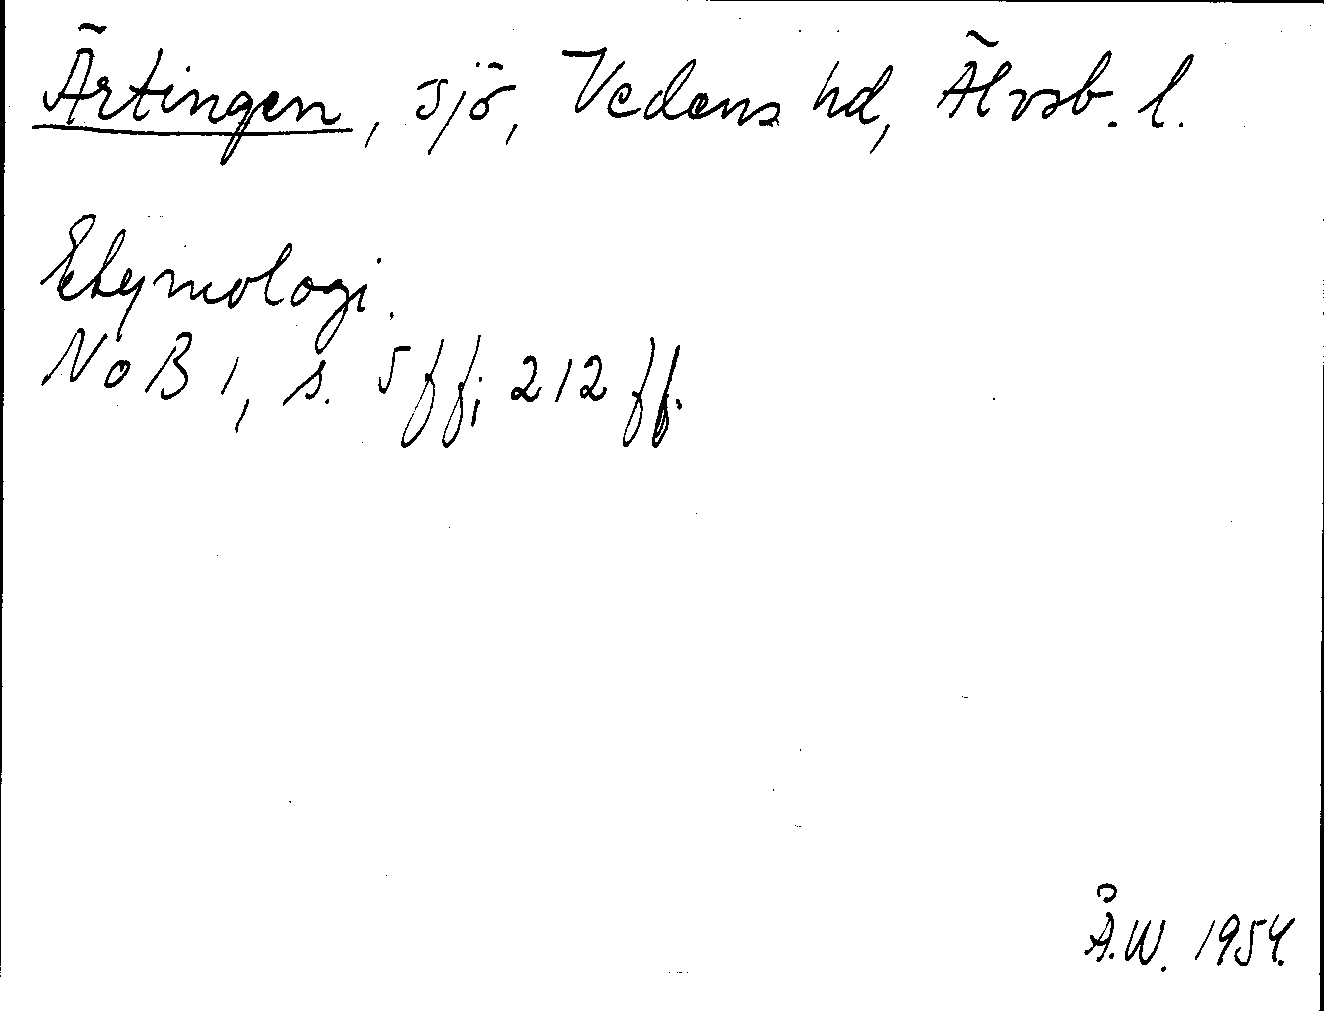 Ärtingen, sjö, Vedens hd, Älvsb. l.
Etymologi.
NoB 1, s. 5 ff; 212 ff.
Å.W. 1954.